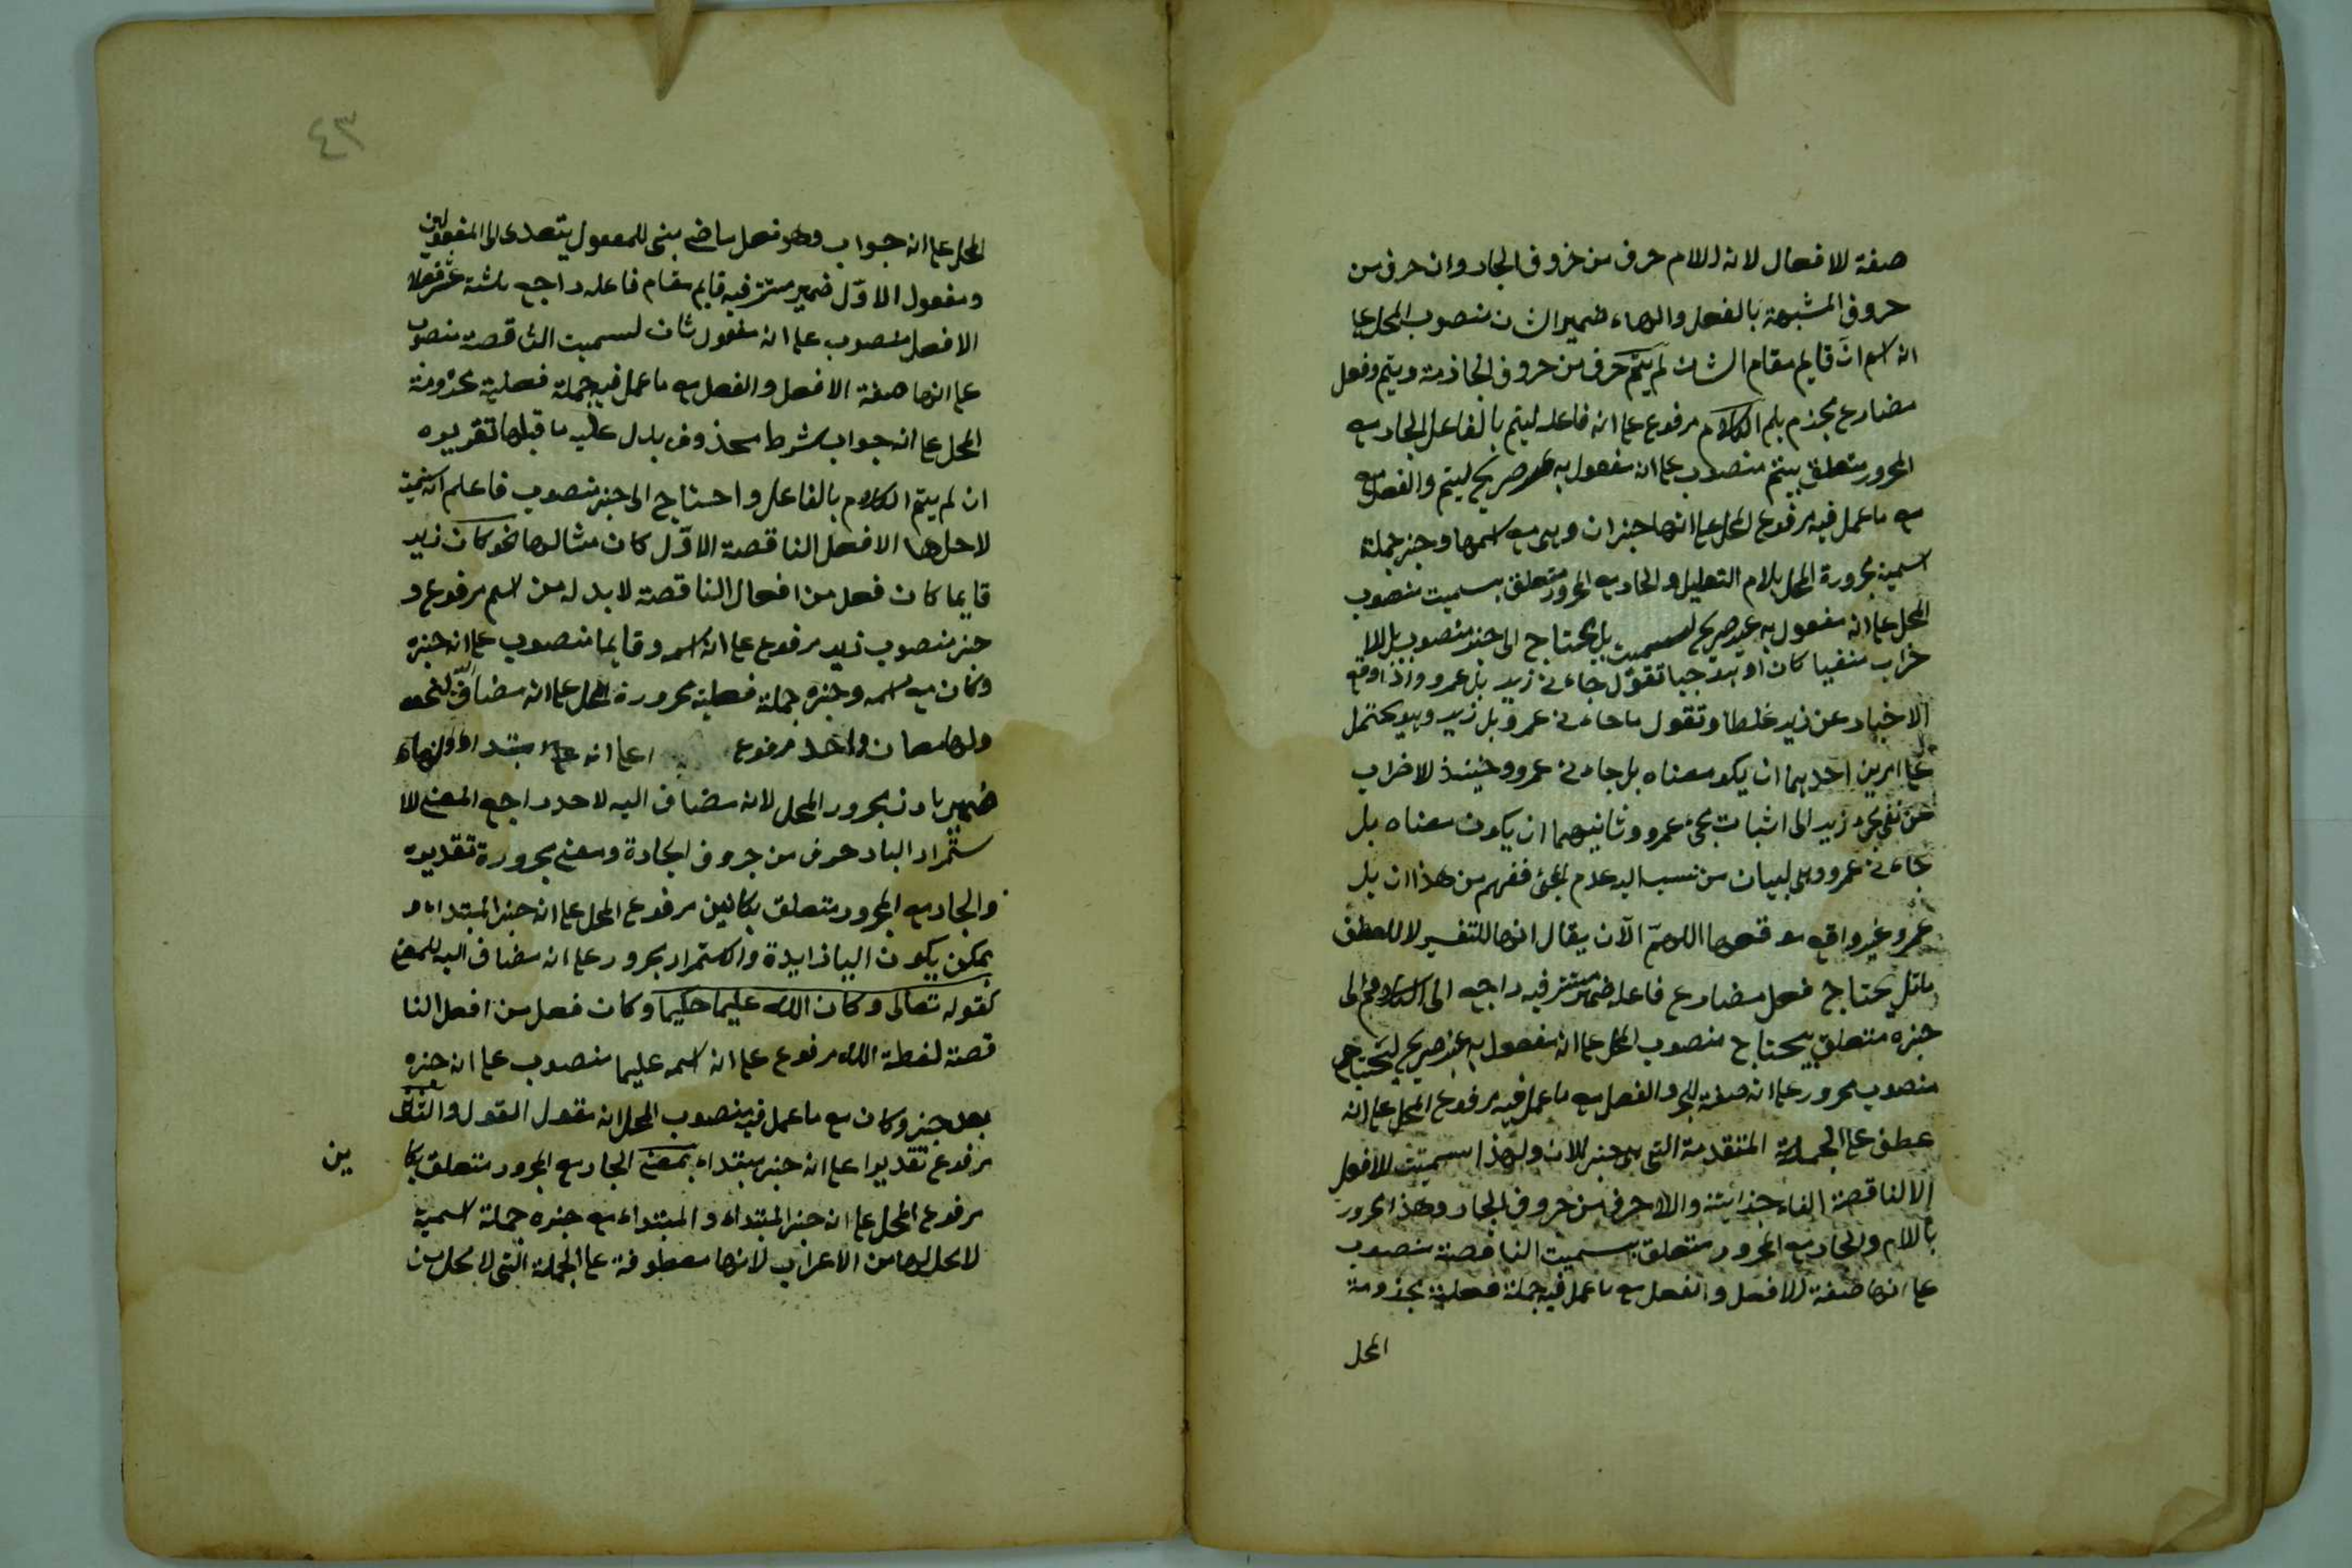 صفة للافعال لانه اللام حرف من حروف الجار وان حرف من
حروف المشبهة بالفعل والهاء ضمير الشان منصوب المحل على
انه اسم ان قايم مقام الشان لم يتم حرف من حروف الجاذمة ويتم فعل
مضارع مجذم بلم الكلام مرفوع على انه فاعله ليتم بالفاعل الجار مع
المجرور متعلق بيتم منصوب على انه مفعول به غير صريح ليتم والفعل مع
مع ما عمل فيه مرفوع المحل على انها خبر ان وهي مع اسمها وخبر جملة
اسمية مجرورة المحل بلام التعليل والجار مع المجرور متعلق بسميت منصوب
المحل على انه مفعول به غير صريح لسميت بل يحتاج الى خبر منصوب بل للا
ضراب منفيا كان او موجبا تقول جاءني زيد بل عمرو واذا وقع
الاخبار عن زيد غلطا وتقول ما جاءني عمرو بل زيد وهو يحتمل
على امرين احدهما ان يكو معناه بل جاءني عمرو وحينئذ لاضراب
عن نفي مجئ زيد الى اثبات مجئ عمرو وثانيهما ان يكون معناه بل
جاءني عمرو وبل لبيان من نسب اليه عدم المجئ ففهم من هذا ان بل
عمرو غير واقع موقعها اللهم الآن يقال انها للتفسير لا للعطف
ماقل يحتاج فعل مضارع فاعله ضمير مستتر فيه راجع الى الكلام الى
خبره متعلق بيحتاج منصوب المحل على انه مفعول به غير صريح ليحتاج
منصوب مجرور على انه صفة لخبر والفعل مع ما عمل فيه مرفوع المحل على انه
عطف على الجملة المتقدمة التي هي خبر للان ولهذا سميت للافعل
الا الناقصة الفاء جزائية والام حرف من حروف الجار وهذا مجرور
بالام والجار مع المجرور متعلق بسميت الناقصة منصوب
على انها صفة للافعل والفعل مع ما عمل فيه جملة فعلية مجذومة
المحل
٤٣
المحل على انه جواب وهو فعل ماضي بنى للمفعول يتعدى الى المفعولين
ومفعول الاول ضمير مستتر فيه قايم مقام فاعله راجع ثلثة عشر فعلا
الافعل منصوب على انه مفعول ثان لسميت الناقصة منصوب
على انها صفة الافعل والفعل مع ما عمل فيه جملة فعلية مجذومة
المحل على انه جواب شرط محذوف يدل عليه ما قبلها تقديره
ان لم يتم الكلام بالفاعل واحتاج الى خبر منصوب فاعلم انه سميت
لاجلها الافعل الناقصة الاول كان مثالها نحو كان زيد
قايما كان فعل من افعال الناقصة لابد له من اسم مرفوع و
خبر منصوب زيد مرفوع على انه اسمه وقايما منصوب على انه خبره
وكان مع اسمه وخبره جملة فعلية مجرورة المحل على انه مضاف لنحو
ولها معان واحد مرفوع على انه مبتداء ولهاء
ضمير بارز مجرور المحل لانه مضاف اليه لاحد راجع المعنى للا
ستمرار الباء حرف من حروف الجارة ومعنى مجرورة تقديره
والجار مع المجرور متعلق بكائين مرفوع المحل على انه خبر المبتداء و
يمكن يكون الباء زايدة والاستمرار مجرور على انه مضاف اليه للمعنى
كقوله تعالى وكان الله عليما حكيما وكان فعل من افعل النا
قصة لفظة الله مرفوع على انه اسمه عليما منصوب على انه خبره
بعد خبر وكان مع ما عمل فيه منصوب المحل انه مقول القول والثاني
مرفوع تقديرا على انه خبر مبتداء بمعنى الجار مع المجرور متعلق بكا ين
مرفوع المحل على انه خبر المبتداء والمبتداء مع خبره جملة اسمية
لا محل لها من الاعراب لانها معطوفة على الجملة التي لا محل من